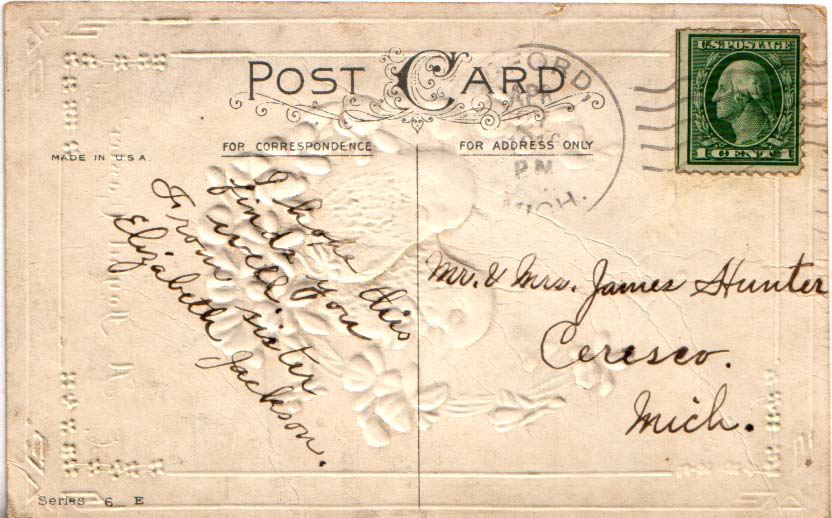 POST CARD
FOR CORRESPONDENCE
FOR ADDRESS ONLY
MADE IN U.S.A.
U.S. POSTAGE
1 CENT 1
FORD,
APR
PM
MICH.
I hope this
finds you
well sister
From
Elizabeth Jackson.
Mr. & Mrs. James Hunter
Ceresco.
Mich.
Series 6 E